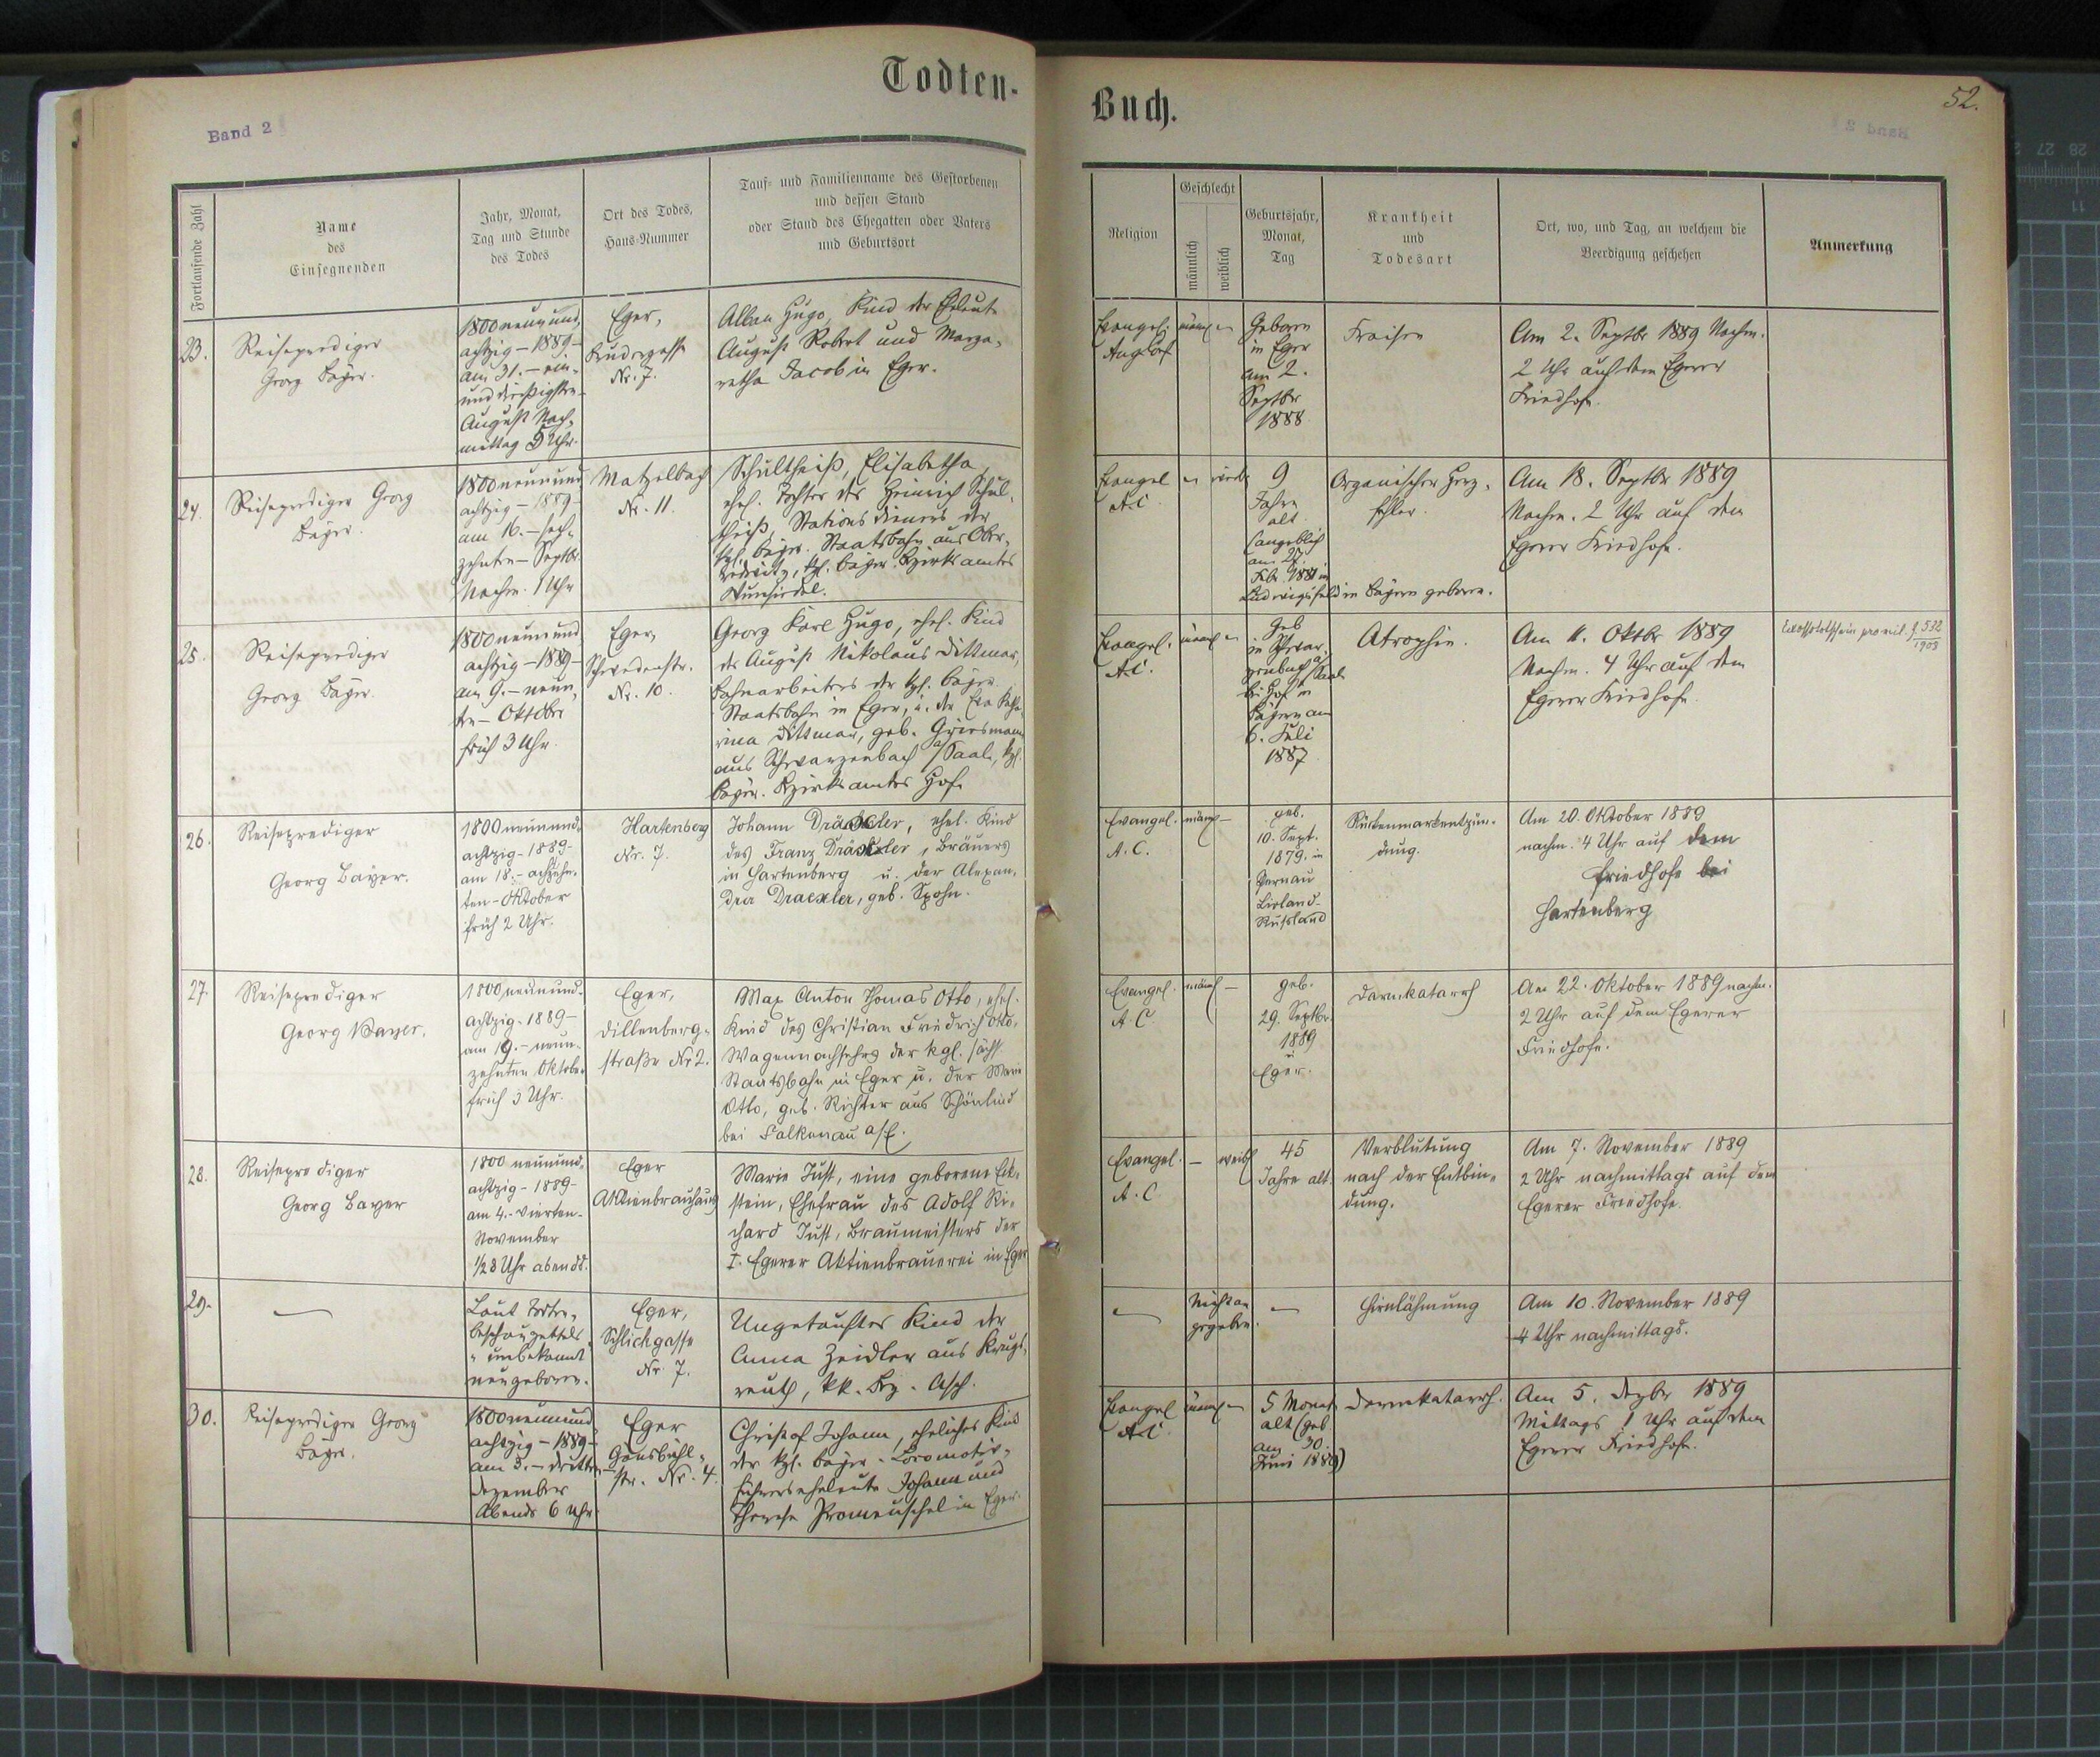 Band 2
Todten-
Buch.
52.
Fortlaufende Zahl
Name
des
Einsegnenden
Jahr, Monat,
Tag und Stunde
des Todes
Ort des Todes,
Haus-Nummer
Tauf- und Familienname des Gestorbenen
und dessen Stand
oder Stand des Ehegatten oder Vaters
und Geburtsort
Religion
Geschlecht
männlich
weiblich
Geburtsjahr,
Monat,
Tag
Krankheit
und
Todesart
Ort, wo, und Tag, an welchem die
Beerdigung geschehen
Anmerkung
23.
Reiseprediger
Georg Bayer.
1800 neun und
achtzig – 1889 –
am 31. – ein-
und dreißigsten –
August Nach-
mittag 5 Uhr.
Eger,
Nr. 7.
Hugo, Kind der Eheleute
August Robert und Marga-
retha Jacob in Eger.
Evangel.
männl –
Geboren
in Eger
am 2.
Septbr
1888
Fraisen
Am 2. Septbr 1889 Nachm.
2 Uhr auf dem Egerer
Friedhofe.
24.
Reiseprediger Georg
Bayer.
1800 neun und
achtzig – 1889 –
am 16. – sech-
zehnten – Septbr
Nachm. 1 Uhr
Matzelbach
Nr. 11.
Schultheiß, Elisabetha,
ehel. Tochter des Heinrich Schul-
theiß, Stationsdieners der
kgl. bayer. Staatsbahn aus Ober-
kgl. bayer. Bezirksamtes
Wunsiedel.
Evangel
A.C.
– weibl
9
Jahre
alt
(angeblich
am 27.
Febr. 1881 in
Ludwigsfeld in Bayern geboren.
Organischer Herz-
fehler.
Am 18. Septbr 1889
Nachm. 2 Uhr auf dem
Egerer Friedhofe.
25.
Reiseprediger
Georg Bayer.
1800 neun und
achtzig – 1889 –
am 9. – neun-
ten – Oktober
früh 3 Uhr.
Eger,
Schwedenstr.
Nr. 10.
Georg Karl Hugo, ehel. Kind
des August Nikolaus Dittmar,
Bahnarbeiters der kgl. bayer.
Staatsbahn in Eger, u. der Eva Katha-
rina Dittmar, geb. Griesmann
aus Schwarzenbach a/Saale, kgl.
bayer. Bezirksamtes Hof.
Evangel.
A.C.
männl –
geb
in Schwar-
zenbach a/Saale
bei Hof in
Bayern am
6. Juli
1887
Atrophie.
Am 11. Oktbr 1889
Nachm. 4 Uhr auf dem
Egerer Friedhofe.
1908
26.
Reiseprediger
Georg Bayer.
1800 neunund-
achtzig – 1889 –
am 18. – achtzehn-
ten – Oktober
früh 2 Uhr.
Hartenberg
Nr. 7.
Johann Dräxler, ehel. Kind
des Franz Dräxler, Bräuers
in Hartenberg u. der Alexan-
dra Draexler, geb. Spohn.
Evangel.
A.C.
männl –
geb.
10. Sept.
1879. in
Pernau
Livland-
Russland
Rückenmarkentzün-
dung.
Am 20. Oktober 1889
nachm. 4 Uhr auf dem
Friedhofe bei
Hartenberg
27.
Reiseprediger
Georg Bayer.
1800 neunund-
achtzig – 1889 –
am 19. – neun-
zehnten Oktober
früh 3 Uhr.
Eger,
Dillenberg-
straße Nr 2.
Max Anton Thomas Otto, ehel.
Kind des Christian Friedrich Otto,
der kgl. sächs.
Staatsbahn in Eger u. der Marie
Otto, geb. Richter aus Schönlind
bei Falkenau a/E.
Evangel.
A.C.
männl –
geb.
29. Septbr.
1889
Eger.
Darmkatarrh
Am 22. Oktober 1889 nachm.
2 Uhr auf dem Egerer
Friedhofe.
28.
Reiseprediger
Georg Bayer
1800 neunund-
achtzig – 1889 –
am 4. – vierten –
November
1/2 8 Uhr abends.
Eger
Aktienbrauhaus
Marie Just, eine geborene Eck-
stein, Ehefrau des Adolf Ri-
chard Just, Braumeisters der
I. Egerer Aktienbrauerei in Eger
Evangel.
A.C.
– weibl
45
Jahre alt.
Verblutung
nach der Entbin-
dung.
Am 7. November 1889
2 Uhr nachmittags auf dem
Egerer Friedhofe.
29.
–
Laut Todten-
beschauzettels
"unbekannt"
neugeboren.
Eger,
Schlickgasse
Nr. 7.
Ungetauftes Kind der
Anna Zeidler aus Krugs-
reuth, kk. Bez. Asch.
–
Nicht an
gegeben.
–
Hirnlähmung
Am 10. November 1889
4 Uhr nachmittags.
30.
Reiseprediger Georg
Bayer.
1800 neun und
achtzig – 1889 –
am 3. – dritten –
Dezember
Abends 6 Uhr.
Eger
Gänsbühl-
str. Nr. 4.
Christof Johann, eheliches Kind
der kgl. bayer. Locomotiv-
führerseheleute Johann und
Therese in Eger.
Evangel
A.C.
männl –
5 Monat
alt (geb
am 30.
Juni 1889)
Darmkatarrh.
Am 5. Dezbr 1889
Mittags 1 Uhr auf dem
Egerer Friedhofe.